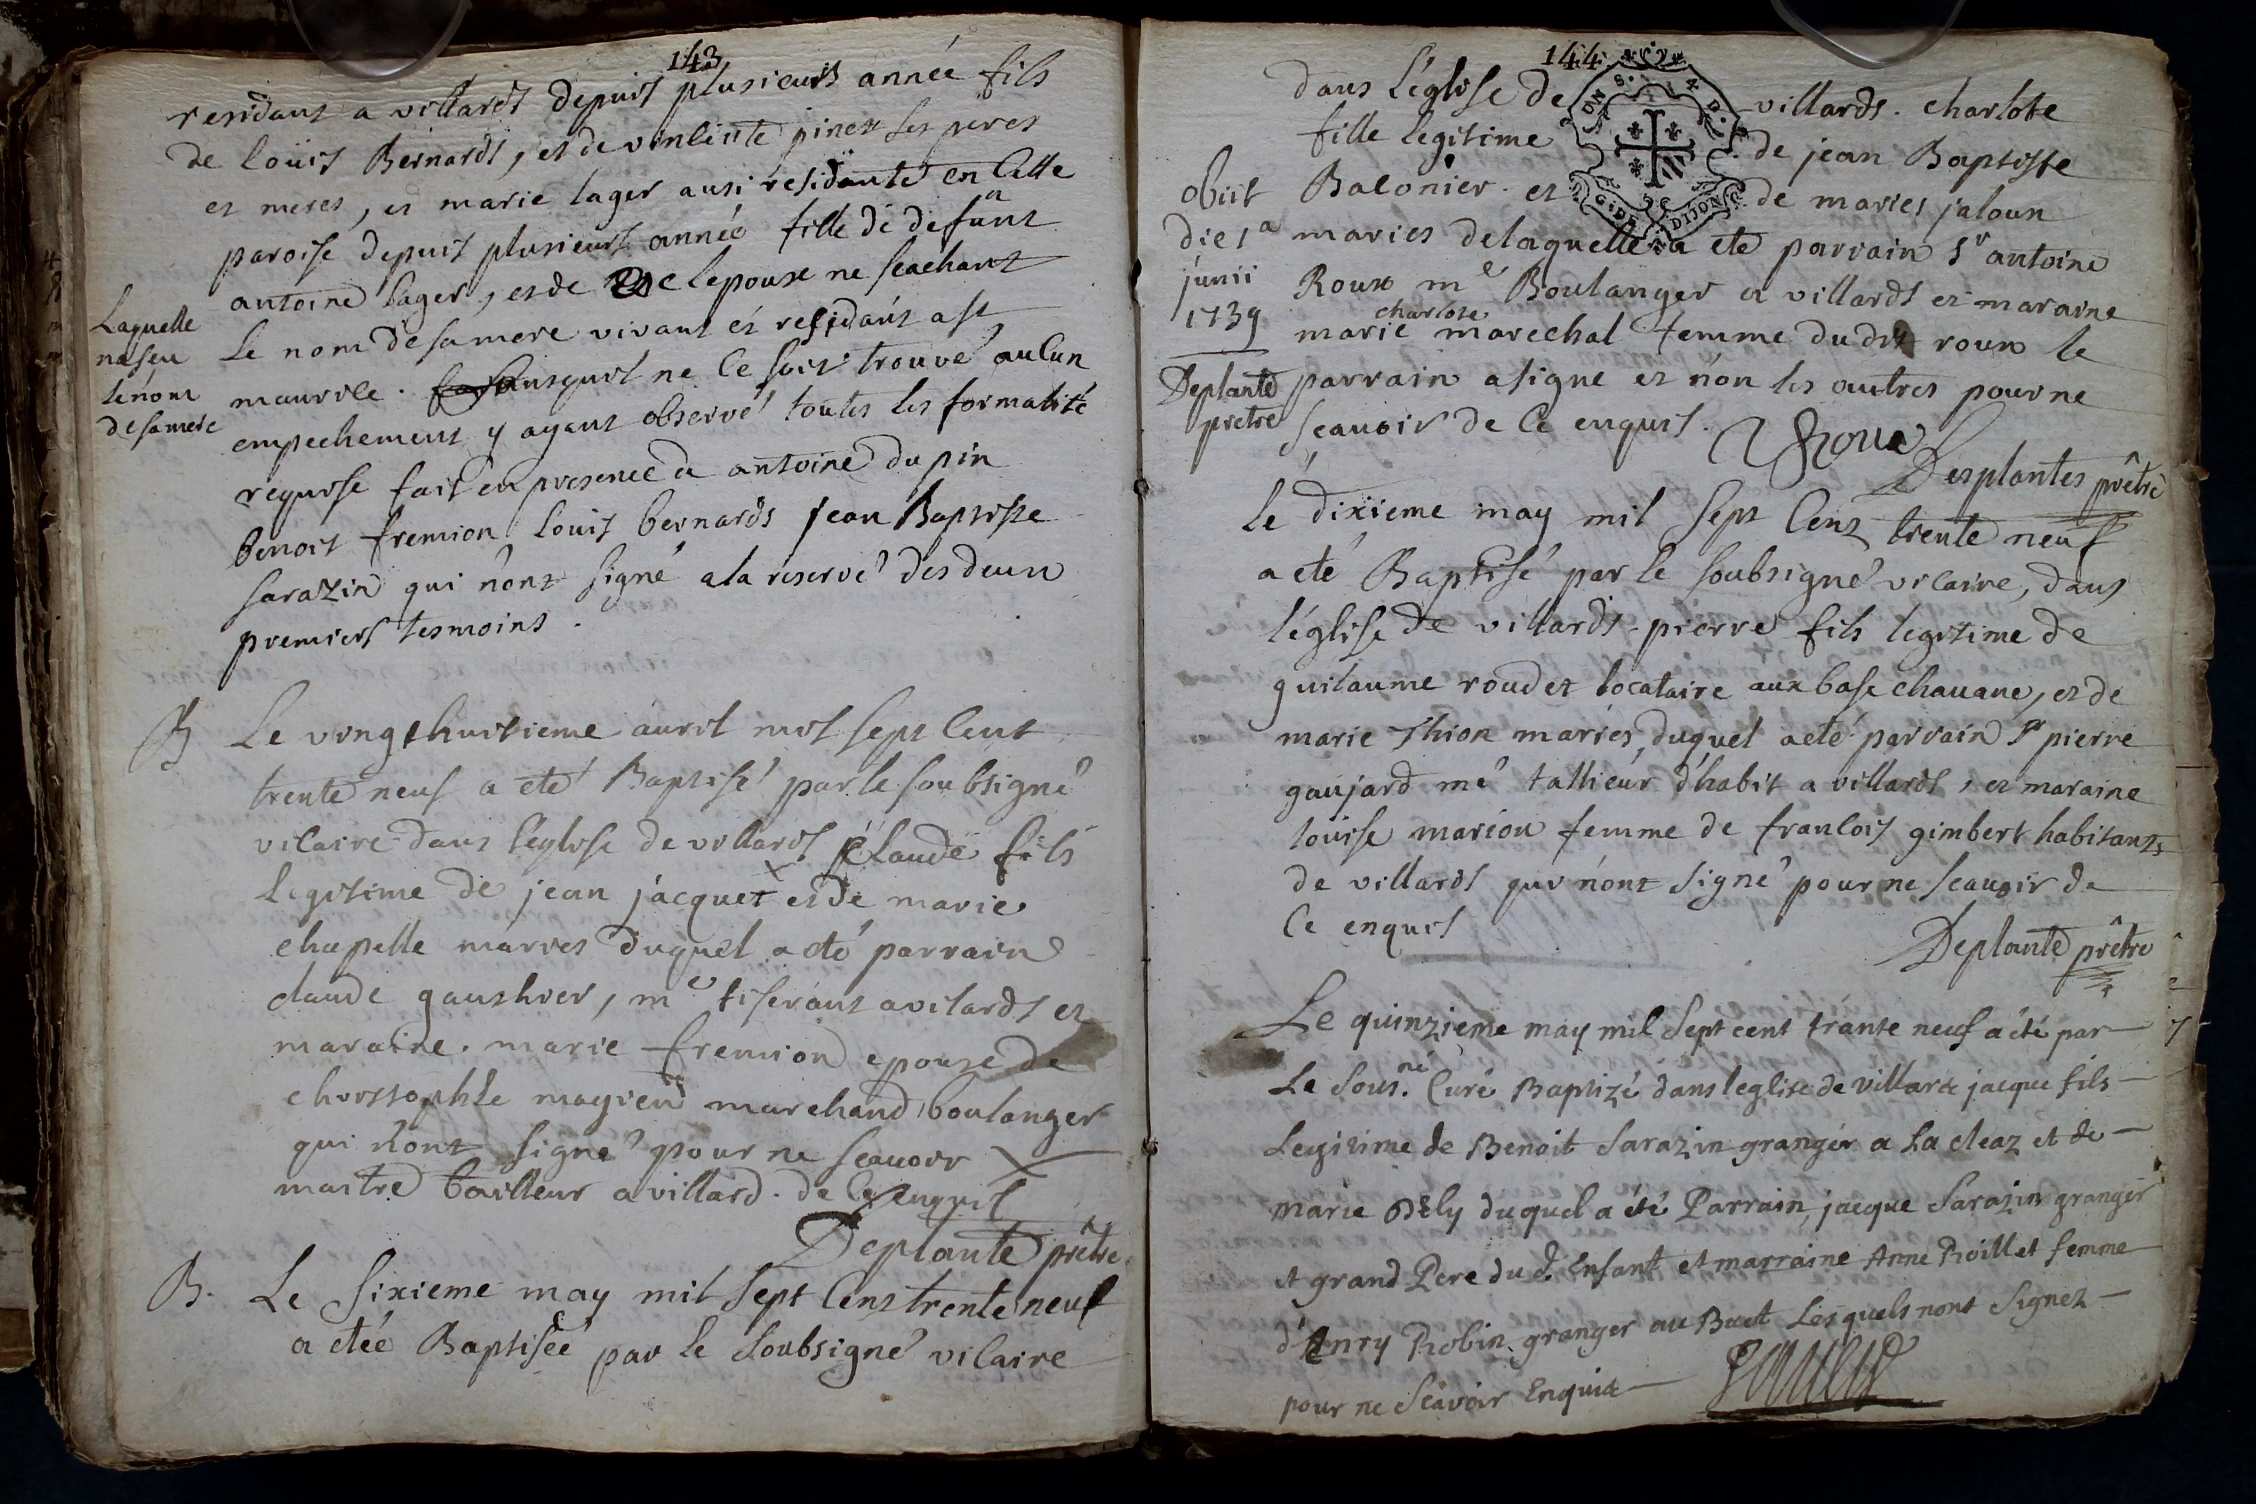 143
residant a villards depuis plusieurs année fils
de louis Bernards, et de vinlente pinet ses peres
et meres, et marie lager ausi residante en cette
paroise depuis plusieurs année fille de defunt
antoine lager, et de lepouse ne scachant
Laquelle
na seu
le nom
de sa mere
le nom de sa mere vivant et residant a st
maurice. ausquels ne ce soit trouvé aucun
empechement y ayant observé toutes les formalité
requise fait en presence de antoine dupin
benoit fremion louis bernards jean Baptiste
sarazin qui n'ont signé a la reserve des deux
premiers tesmoins.
B Le vingthuitieme avril mil sept cent
trente neuf a eté Baptisé par le soubsigné
vicaire dans l'eglise de villards claude fils
legitime de jean jacquet et de marie
chapelle mariés duquel a eté parrain
claude gauthier, me tiserant a vilards et
maraine. marie fremion epouse de
christophle mayieu marchand boulanger
qui n'ont signé pour ne scauoir
maitre tailleur a villard. de ce enquis
Deplante prêtre
B. Le sixieme may mil sept cens trente neuf
a etée Baptisée par le soubsigné vicaire
144
dans l'église de villards. charlote
fille legitime de jean Baptiste
GDE DIJON
obiit
die 1a
junii
1739
Deplante
pretre
Balonier. et de maries jaloun
maries delaquelle a ete parrain sr antoine
Roux me Boulanger a villards et maraine
charlote
marie marechal femme dudit roux le
parrain a signe et non les autres pour ne
scauoir de ce enquis. Roux
Desplantes prêtre
Le dixieme may mil sept cens trente neuf
a eté Baptisé par le soubsigné vicaire, dans
l'église de villards. pierre fils legitime de
guilaume roudet locataire aux base chauane, et de
marie Thion mariés, duquel a eté parrain sr pierre
gaujard me tallieur d'habit a villards, et maraine
louise marion femme de francois gimbert habitants
de villards qui n'ont signé pour ne scauoir de
ce enquis
Deplante prêtre
Le quinzieme may mil sept cent trante neuf a été par
Le sous.né Curé Baptizé dans leglise de Villard jacque fils
Legitime de Benoit Sarazin granger a La cleaz et de
marie Dely duquel a été Parrain, jacque Sarazin granger
et grand Pere dud. Enfant et marraine Anne Roillet femme
d'Enry Robin granger au Buet Lesquels nont Signez
pour ne Scavoir Enquis